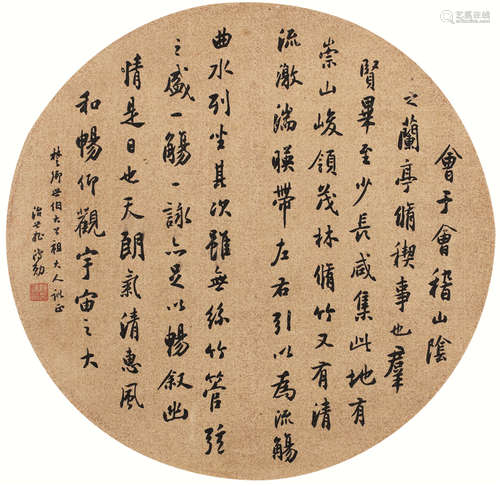 會于會稽山陰
之蘭亭脩稧事也羣
賢畢至少長咸集此地有
崇山峻領茂林脩竹又有清
流激湍暎帶左右引以為流觴
曲水列坐其次雖無絲竹管弦
之盛一觴一詠亦足以暢叙幽
情是日也天朗氣清惠風
和暢仰觀宇宙之大
楚卿世伯大公祖大人訓正
治世姪
艺狐在线